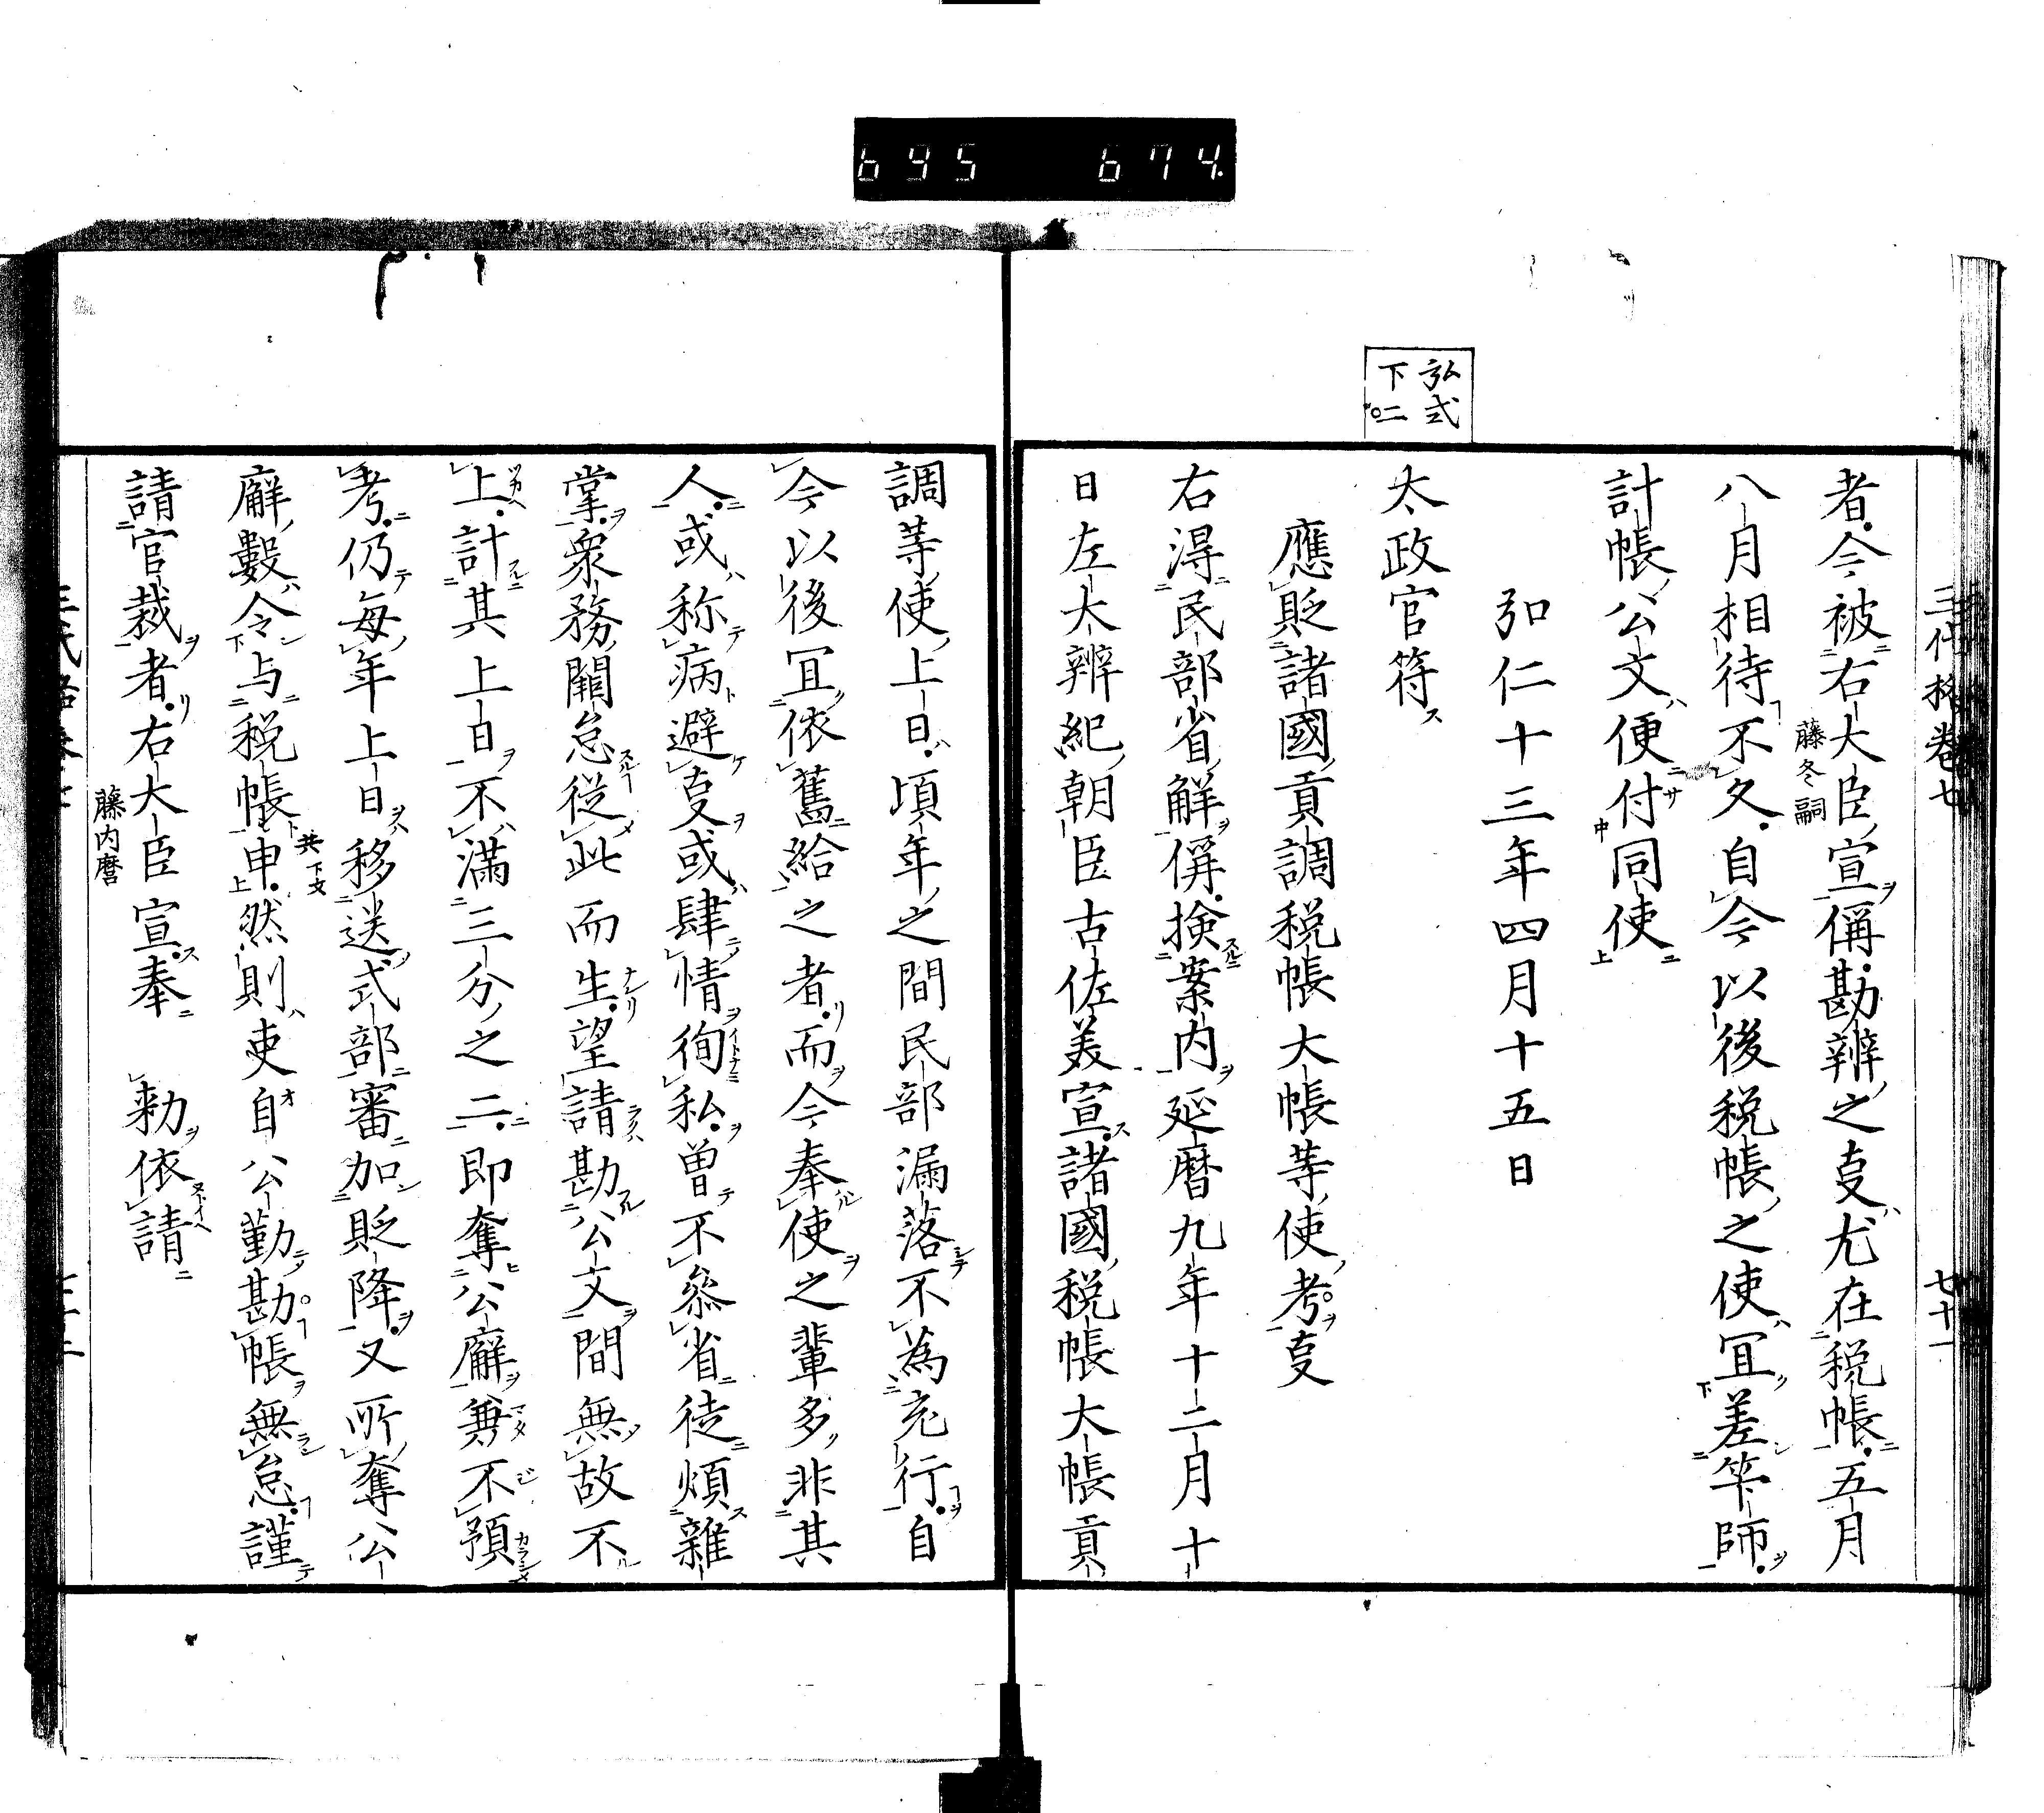 695 674
三代格卷七 七十一
者今被右大臣宣偁勘辨之叓尤在税帳五月
藤冬嗣
八月相待不久自今以後税帳之使宜差竿師
計帳公文便付同使
弘仁十三年四月十五日
弘式
下二
太政官符
應貶諸國貢調税帳大帳等使考叓
右得民部省解偁撿案内延暦九年十二月十
日左大辨紀朝臣古佐美宣諸國税帳大帳貢
調等使上日頃年之間民部漏落不為充行自
今以後宜依舊給之者而今奉使之輩多非其
人或称病避叓或肆情徇私曽不叅省徒煩雜
掌衆務闕怠從此而生望請勘公文間無故不
上計其上日不満三分之二即奪公廨兼不預
考仍每年上日移送式部審加貶降又所奪公
廨數令与税帳共下文申然則吏自公勤勘帳無怠謹
請官裁者右大臣宣奉 勅依請
藤内麿